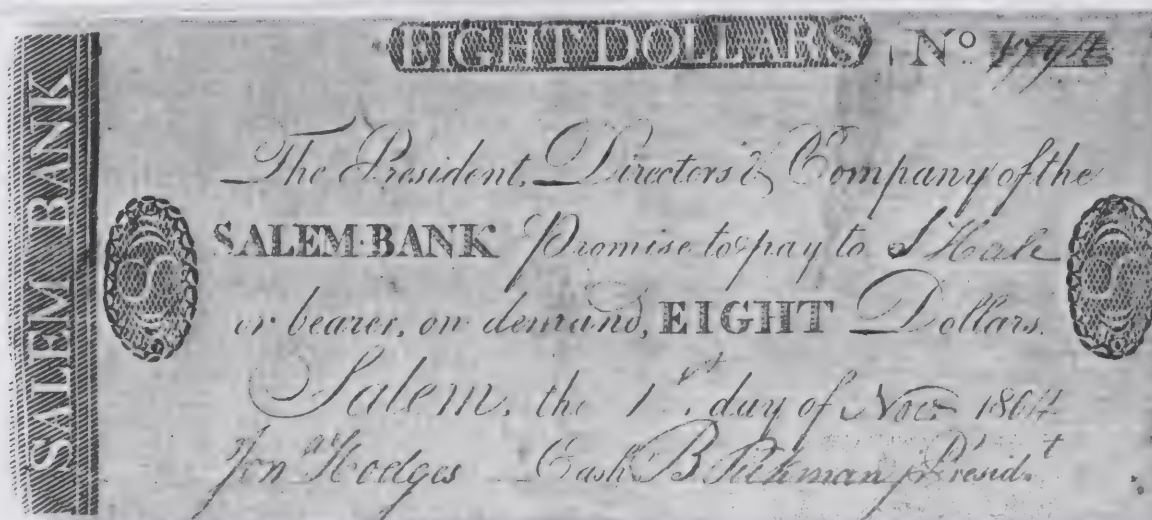 SALEM BANK
EIGHT DOLLARS No 1794
The President, Directors & Company of the
SALEM·BANK Promise to pay to S Hale
or bearer, on demand, EIGHT Dollars.
Salem, the 1st day of Nov 1804
Jon Hodges Cash B Pickman Presidt